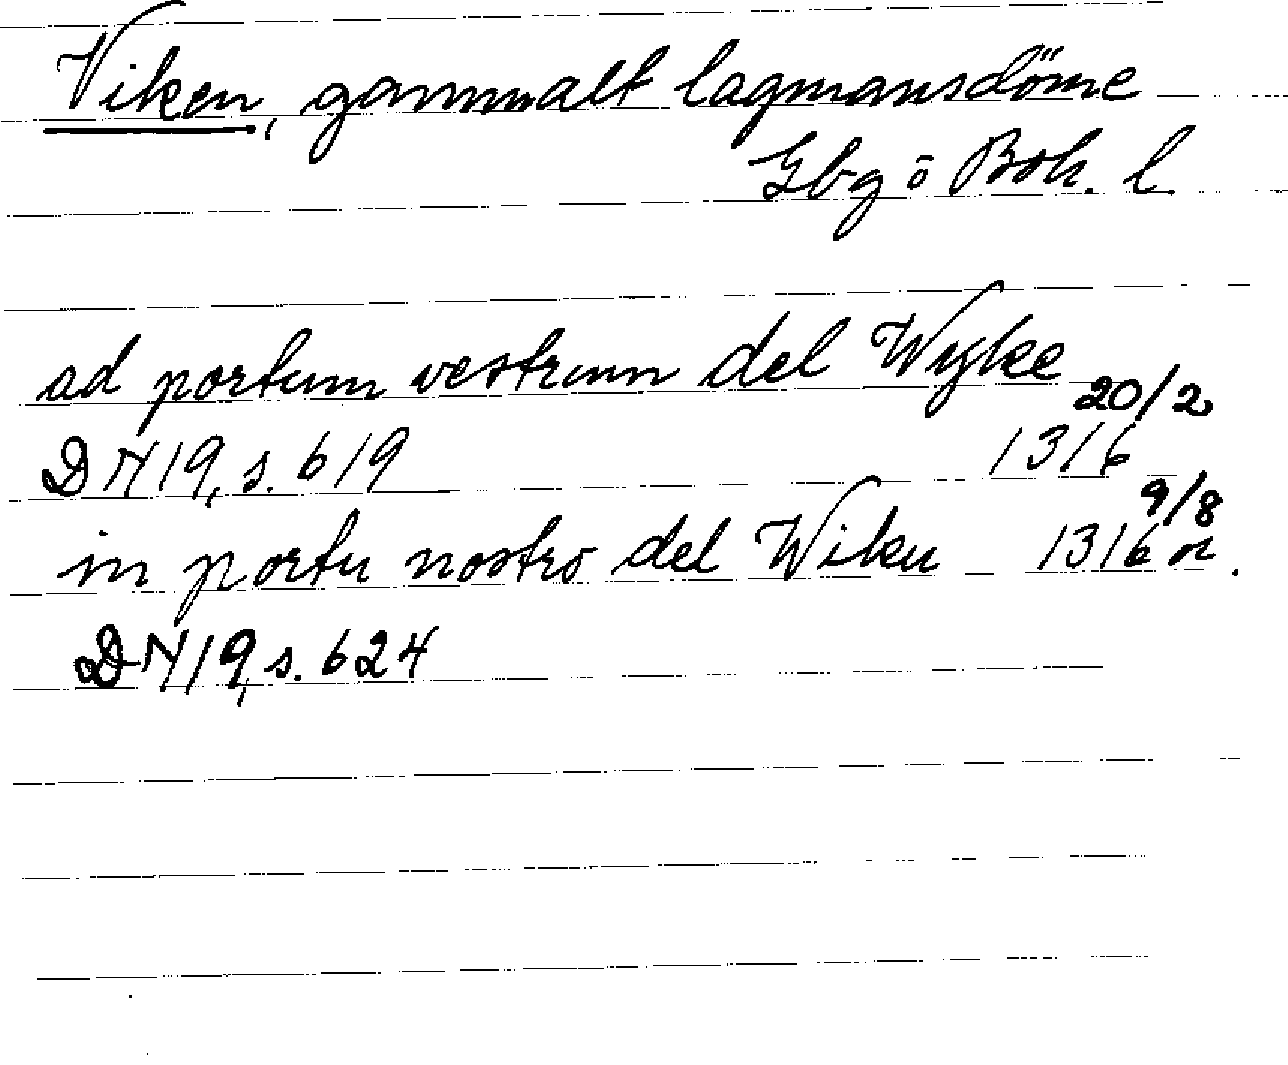 Viken, gammalt lagmansdöme
Gbg o Boh. l.
ad portum vestrum del Wyke 20/2
DN 19, s. 619 1316
in portu nostro del Wiku 1316 9/8
DN 19, s. 624